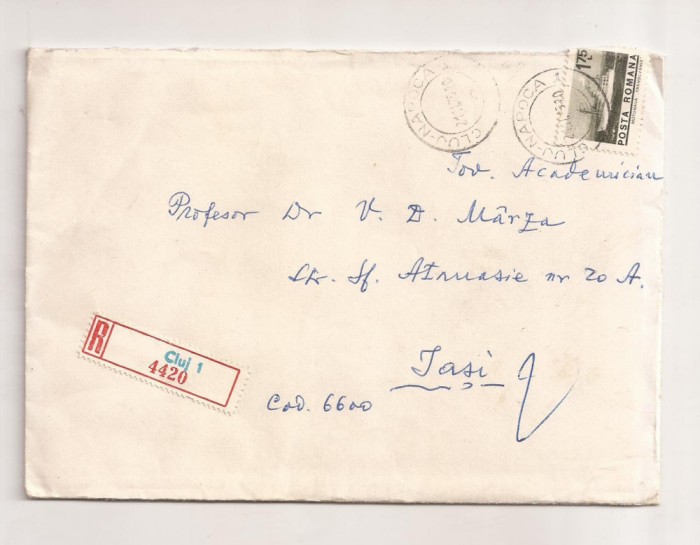 CLUJ-NAPOCA
CLUJ-NAPOCA
175
POSTA ROMANA
Tov. Academician
Profesor Dr V. D. Mârza
Str. Sf. Atanasie nr 20 A.
Iași
Cod. 6600
R
Cluj 1
4420